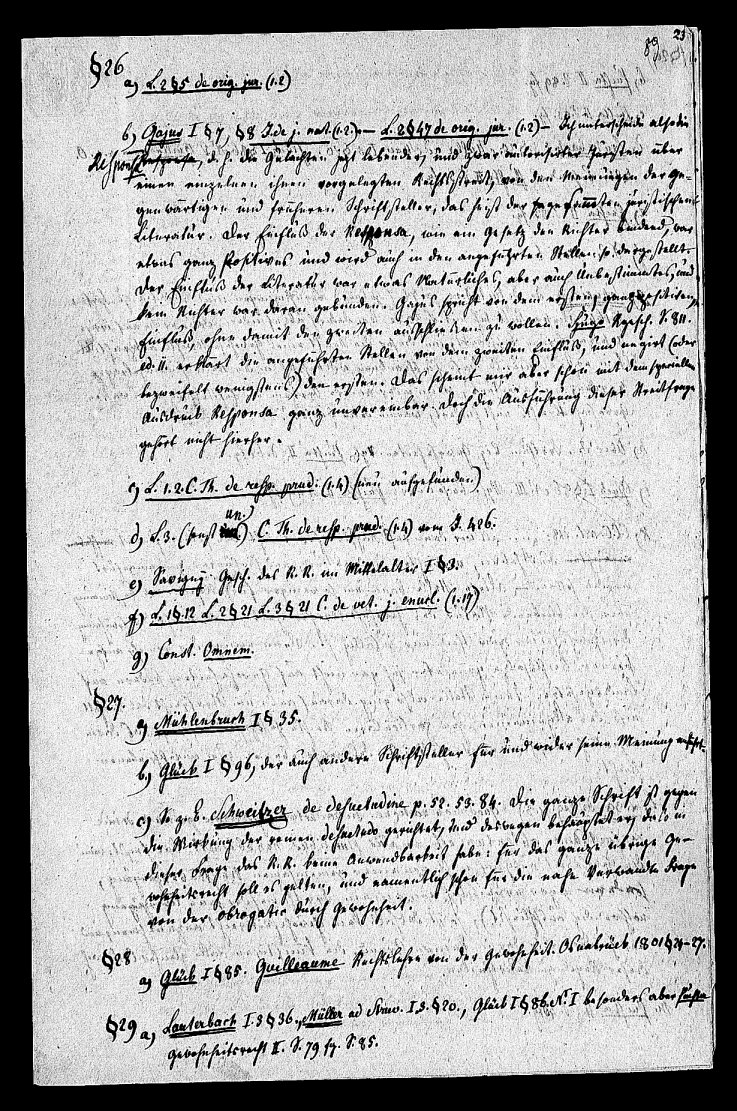 23
89
§26
a) L. 2 §5 de orig. jur. (1.2)
b) Gajus I §7, §8 J. de j. nat. (1.2.) – L. 2 §47 de orig. jur. (1.2) – Ich unterscheide also die
Responsa
Responsa, d. h. die Gutachten jetzt lebender, und zwar autorisirter Juristen über
einen einzelnen ihnen vorgelegten Rechtsstreit, von den Meinungen der ge-
genwärtigen und früheren Schriftsteller, das heist der gesammten juristischen
Literatur. Der Einfluß der Responsa, wie ein Gesetz den Richter bindend, war
etwas ganz Positives und wird auch in den angeführten Stellen so dargestellt.
Der Einfluß der Literatur war etwas Natürliches, aber auch Unbestimmtes, und
kein Richter war daran gebunden. Gajus spricht von dem ersten, ganz positiven
Einfluß, ohne damit den zweiten ausschließen zu wollen. Hugo Rgesch. S. 811.
ed. 11. erklärt die angeführten Stellen von dem zweiten Einfluß, und negirt (oder
bezweifelt wenigstens) den ersten. Das scheint mir aber schon mit dem speciellen
Ausdruck Responsa ganz unvereinbar. Doch die Ausführung dieser Streitfrage
gehört nicht hierher.
c) L. 1. 2. C. Th. de resp. prud. (1.4) (neu aufgefunden)
un.
d) L. 3. (sonst) C. Th. de resp. prud. (1.4) vom J. 426.
e) Savigny Gesch. des R. R. im Mittelalter I §3.
f) L. 1 §12 L. 2 §21 L. 3 §21 C. de vet. j. enucl. (1.17)
g) Const. Omnem.
§27.
a) Mühlenbruch I §35.
b) Glück I §96, der auch andere Schriftsteller für und wider seine Meinung anführt.
c) So z. B. Schweitzer de desuetudine p. 52. 53. 84. Die ganze Schrift ist gegen
die Wirkung der reinen desuetudo gerichtet, und deswegen behauptet er, daß in
dieser Frage das R. R. keine Anwendbarkeit habe: für das ganze übrige Ge-
wohnheitsrecht soll es gelten, und namentlich schon für die nahe verwandte Frage
von der obrogatio durch Gewohnheit.
§28
a) Glück I §85. Guilleaume Rechtslehre von der Gewohnheit. Osnabrück 1801 §24–27.
§29 a) Lauterbach I. 3 §36., Müller ad Struv. I. 3. §20., Glück I §86. N. I besonders aber Puchta
Gewohnheitsrecht II. S. 79 fg. S. 85.